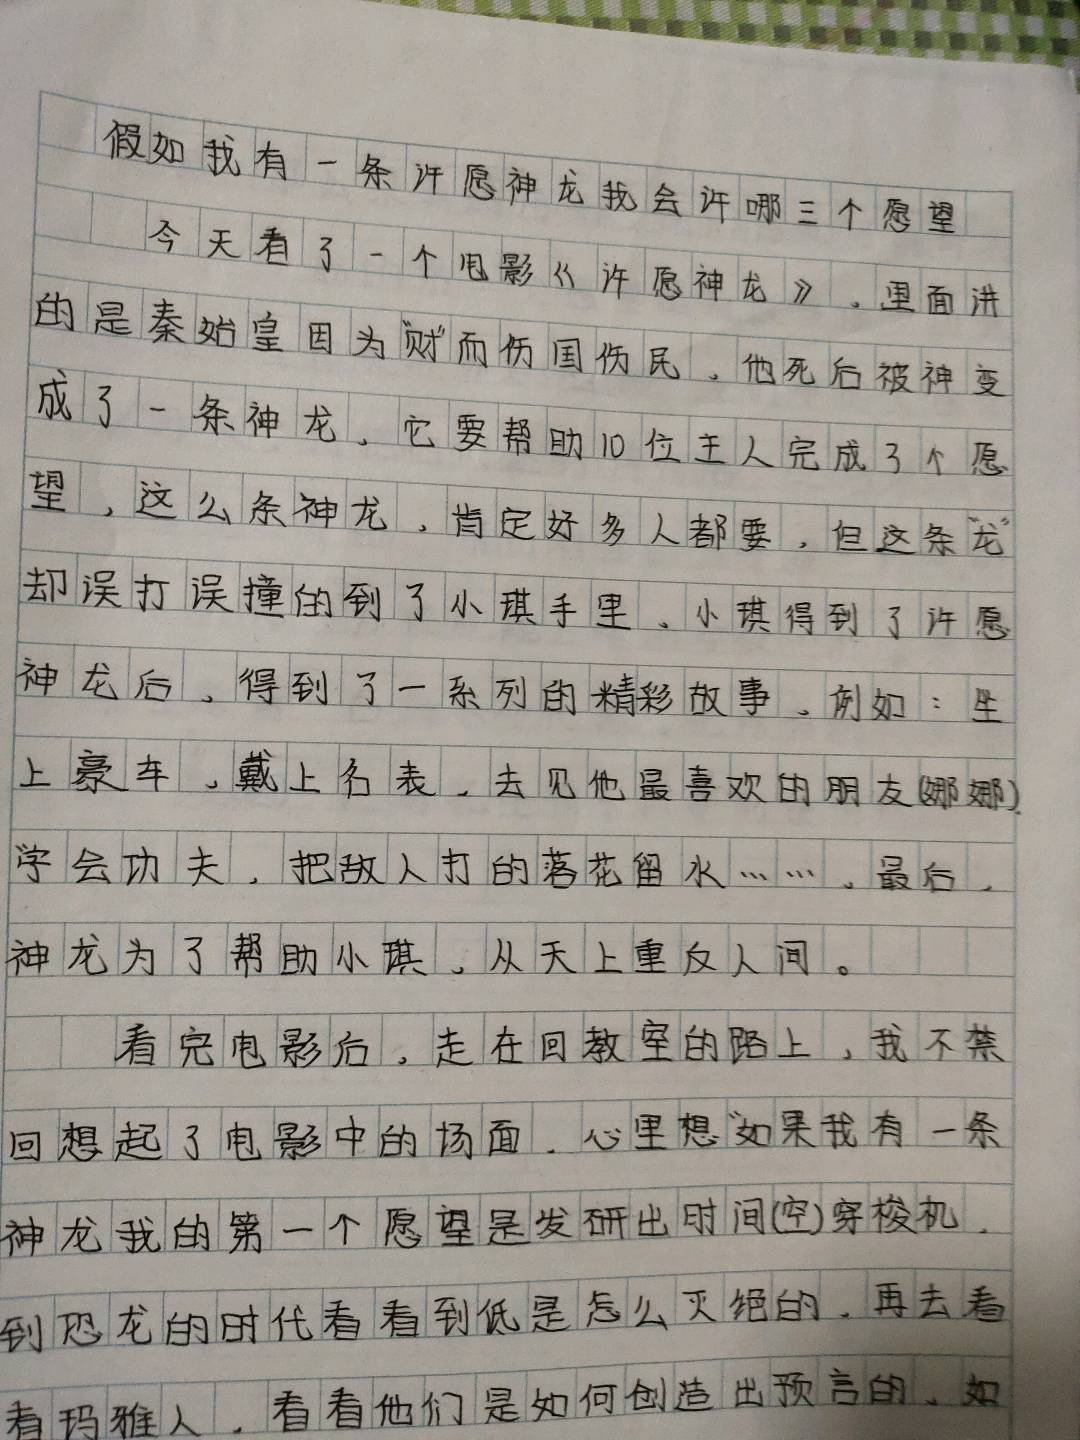 假如我有一条许愿神龙我会许哪三个愿望
今天看了一个电影《许愿神龙》，里面讲
的是秦始皇因为“财”而伤国伤民，他死后被神变
成了一条神龙，它要帮助10位主人完成3个愿
望，这么条神龙，肯定好多人都要，但这条“龙”
却误打误撞的到了小琪手里，小琪得到了许愿
神龙后，得到了一系列的精彩故事，例如：坐
上豪车，戴上名表，去见他最喜欢的朋友(娜娜)，
学会功夫，把敌人打的落花留水……，最后，
神龙为了帮助小琪，从天上重反人间。
看完电影后，走在回教室的路上，我不禁
回想起了电影中的场面，心里想“如果我有一条
神龙我的第一个愿望是发研出时间(空)穿梭机，
到恐龙的时代看看到低是怎么灭绝的，再去看
看玛雅人，看看他们是如何创造出预言的，如